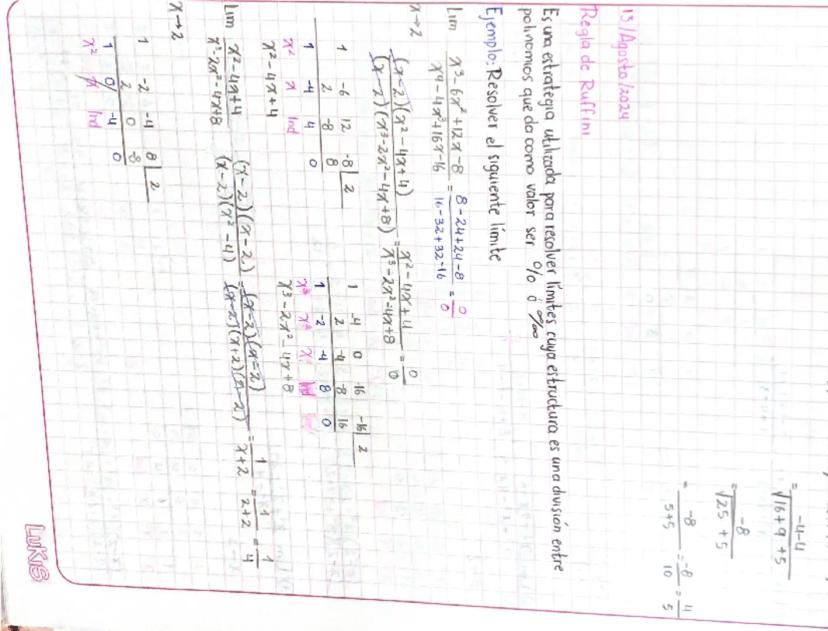 = -4-4 / √16+9 +5
= -8 / √25 +5
= -8 / 5+5 = -8 / 10 = 4 / 5
13/Agosto/2024
Regla de Ruffini
Es una estrategia utilizada para resolver límites cuya estructura es una división entre
polinomios que da como valor ser 0/0 ó ∞/∞
Ejemplo: Resolver el siguiente límite
Lim x³-6x²+12x-8 / x⁴-4x³+16x-16 = 8-24+24-8 / 16-32+32-16 = 0/0
x→2
(x-2)(x²-4x+4) / (x-2)(x³-2x²-4x+8) = x²-4x+4 / x³-2x²-4x+8 = 0/0
1 -6 12 -8 | 2
2 -8 8
1 -4 4 0
x² x Ind
x²-4x+4
1 -4 0 16 -16 | 2
2 -4 -8 16
1 -2 -4 8 0
x³ x² x Ind
x³-2x²-4x+8
Lim x²-4x+4 / x³-2x²-4x+8
x→2
(x-2)(x-2) / (x-2)(x²-4) = (x-2)(x-2) / (x-2)(x+2)(x-2) = 1 / x+2 = 1 / 2+2 = 1 / 4
1 -2 -4 8 | 2
2 0 -8
1 0 -4 0
x² x Ind
LUKIS